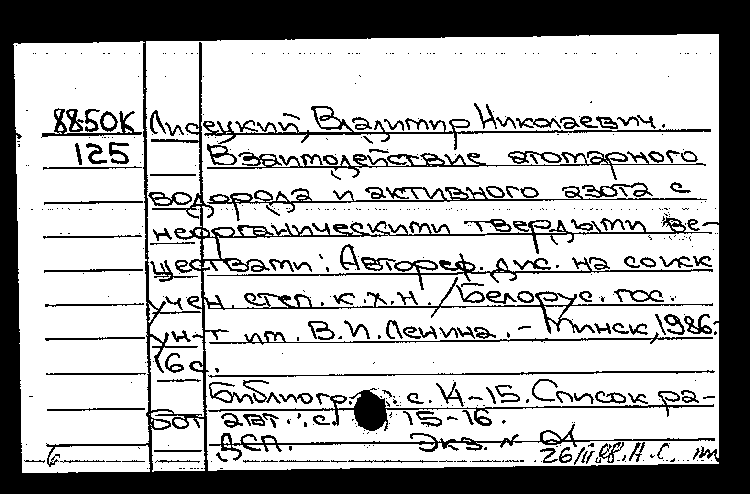 8850К Лисецкий, Владимир Николаевич.
125 Взаимодействие атомарного
водорода и активного азота с
неорганическими твердыми ве-
ществами: Автореф. дис. на соиск
учен. степ. к.х.н. / Белорус. гос.
ун-т им. В.И. Ленина. - Минск, 1986.
16 с.
Библиогр.: с. 14-15. Список ра-
бот авт.: с. 15-16.
ДСП. Экз. №
26/II 88. Н.С.